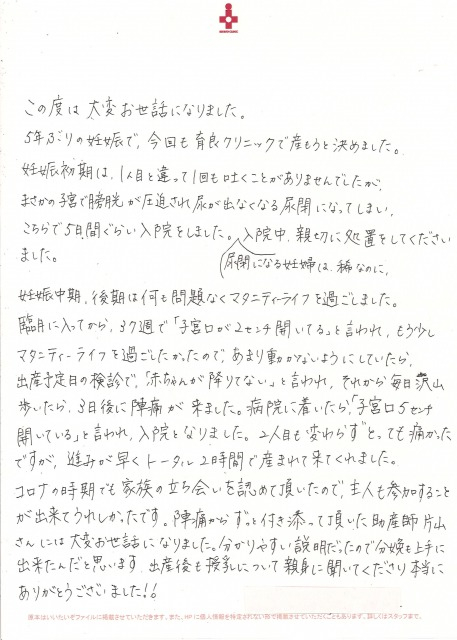 この度は大変お世話になりました。
5年ぶりの妊娠で、今回も育良クリニックで産もうと決めました。
妊娠初期は、1人目と違って1回も吐くことがありませんでしたが、
まさかの子宮で膀胱が圧迫され尿が出なくなる尿閉になってしまい、
こちらで5日間ぐらい入院をしました。入院中、親切に処置をしてください
ました。
尿閉になる妊婦は、稀なのに、
妊娠中期、後期は何も問題なくマタニティーライフを過ごしました。
臨月に入ってから、37週で「子宮口が2センチ開いてる」と言われ、もう少し
マタニティーライフを過ごしたかったので、あまり動かないようにしていたら、
出産予定日の検診で、「赤ちゃんが降りてない」と言われ、それから毎日沢山
歩いたら、3日後に陣痛が来ました。病院に着いたら「子宮口5センチ
開いている」と言われ、入院となりました。2人目も変わらずとっても痛かった
ですが、進みが早くトータル2時間で産まれて来てくれました。
コロナの時期でも家族の立ち会いを認めて頂いたので、主人も参加すること
が出来てうれしかったです。陣痛からずっと付き添って頂いた助産師片山
さんには大変お世話になりました。分かりやすい説明だったので分娩も上手に
出来たんだと思います。出産後も授乳について親身に聞いてくださり本当に
ありがとうございました!!
原本はいいたいぞファイルに掲載させていただきます。また、HPに個人情報を特定されない形で掲載させていただくこともあります。詳しくはスタッフまで。